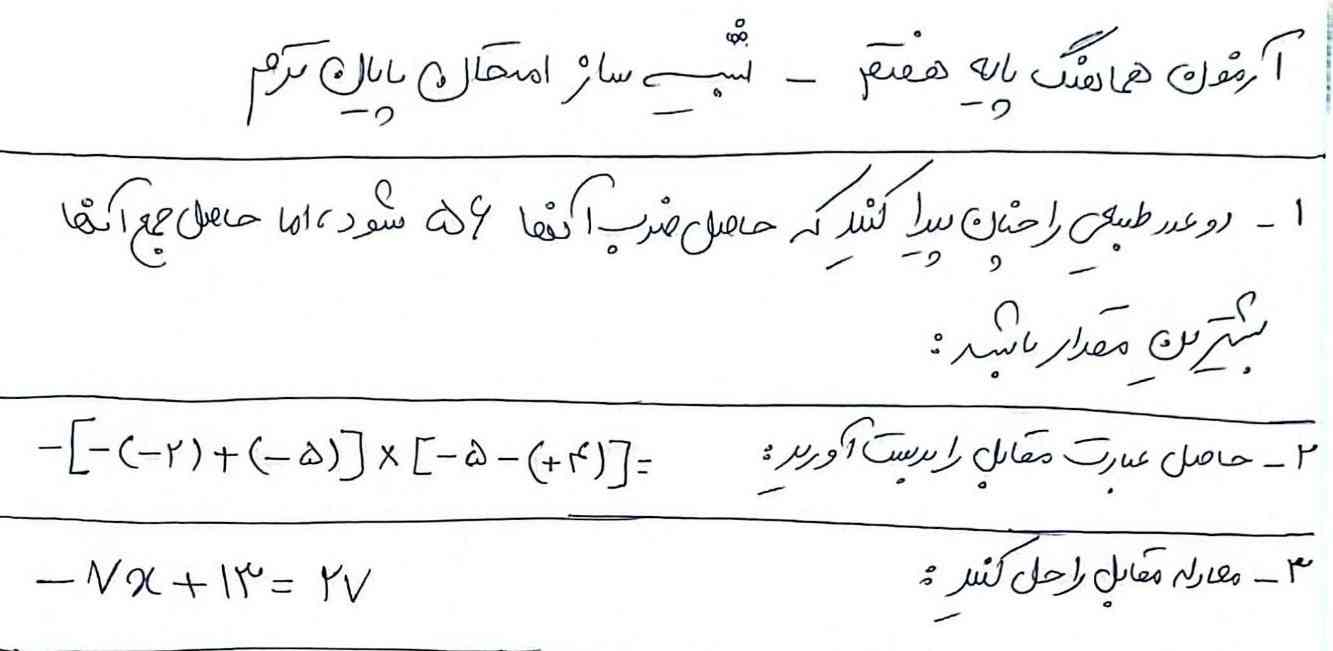 آزمون هماهنگ پایه هفتم - شبیه ساز امتحان پایان ترم
۱ - دو عدد طبیعی را چنان پیدا کنید که حاصل ضرب آنها ۵۶ شود، اما حاصل جمع آنها
بیشترین مقدار باشد:
۲ - حاصل عبارت مقابل را بدست آورید: -[-(-۲)+(-۵)]×[-۵-(+۴)]=
۳ - معادله مقابل را حل کنید: -۷x+۱۳=۲۷